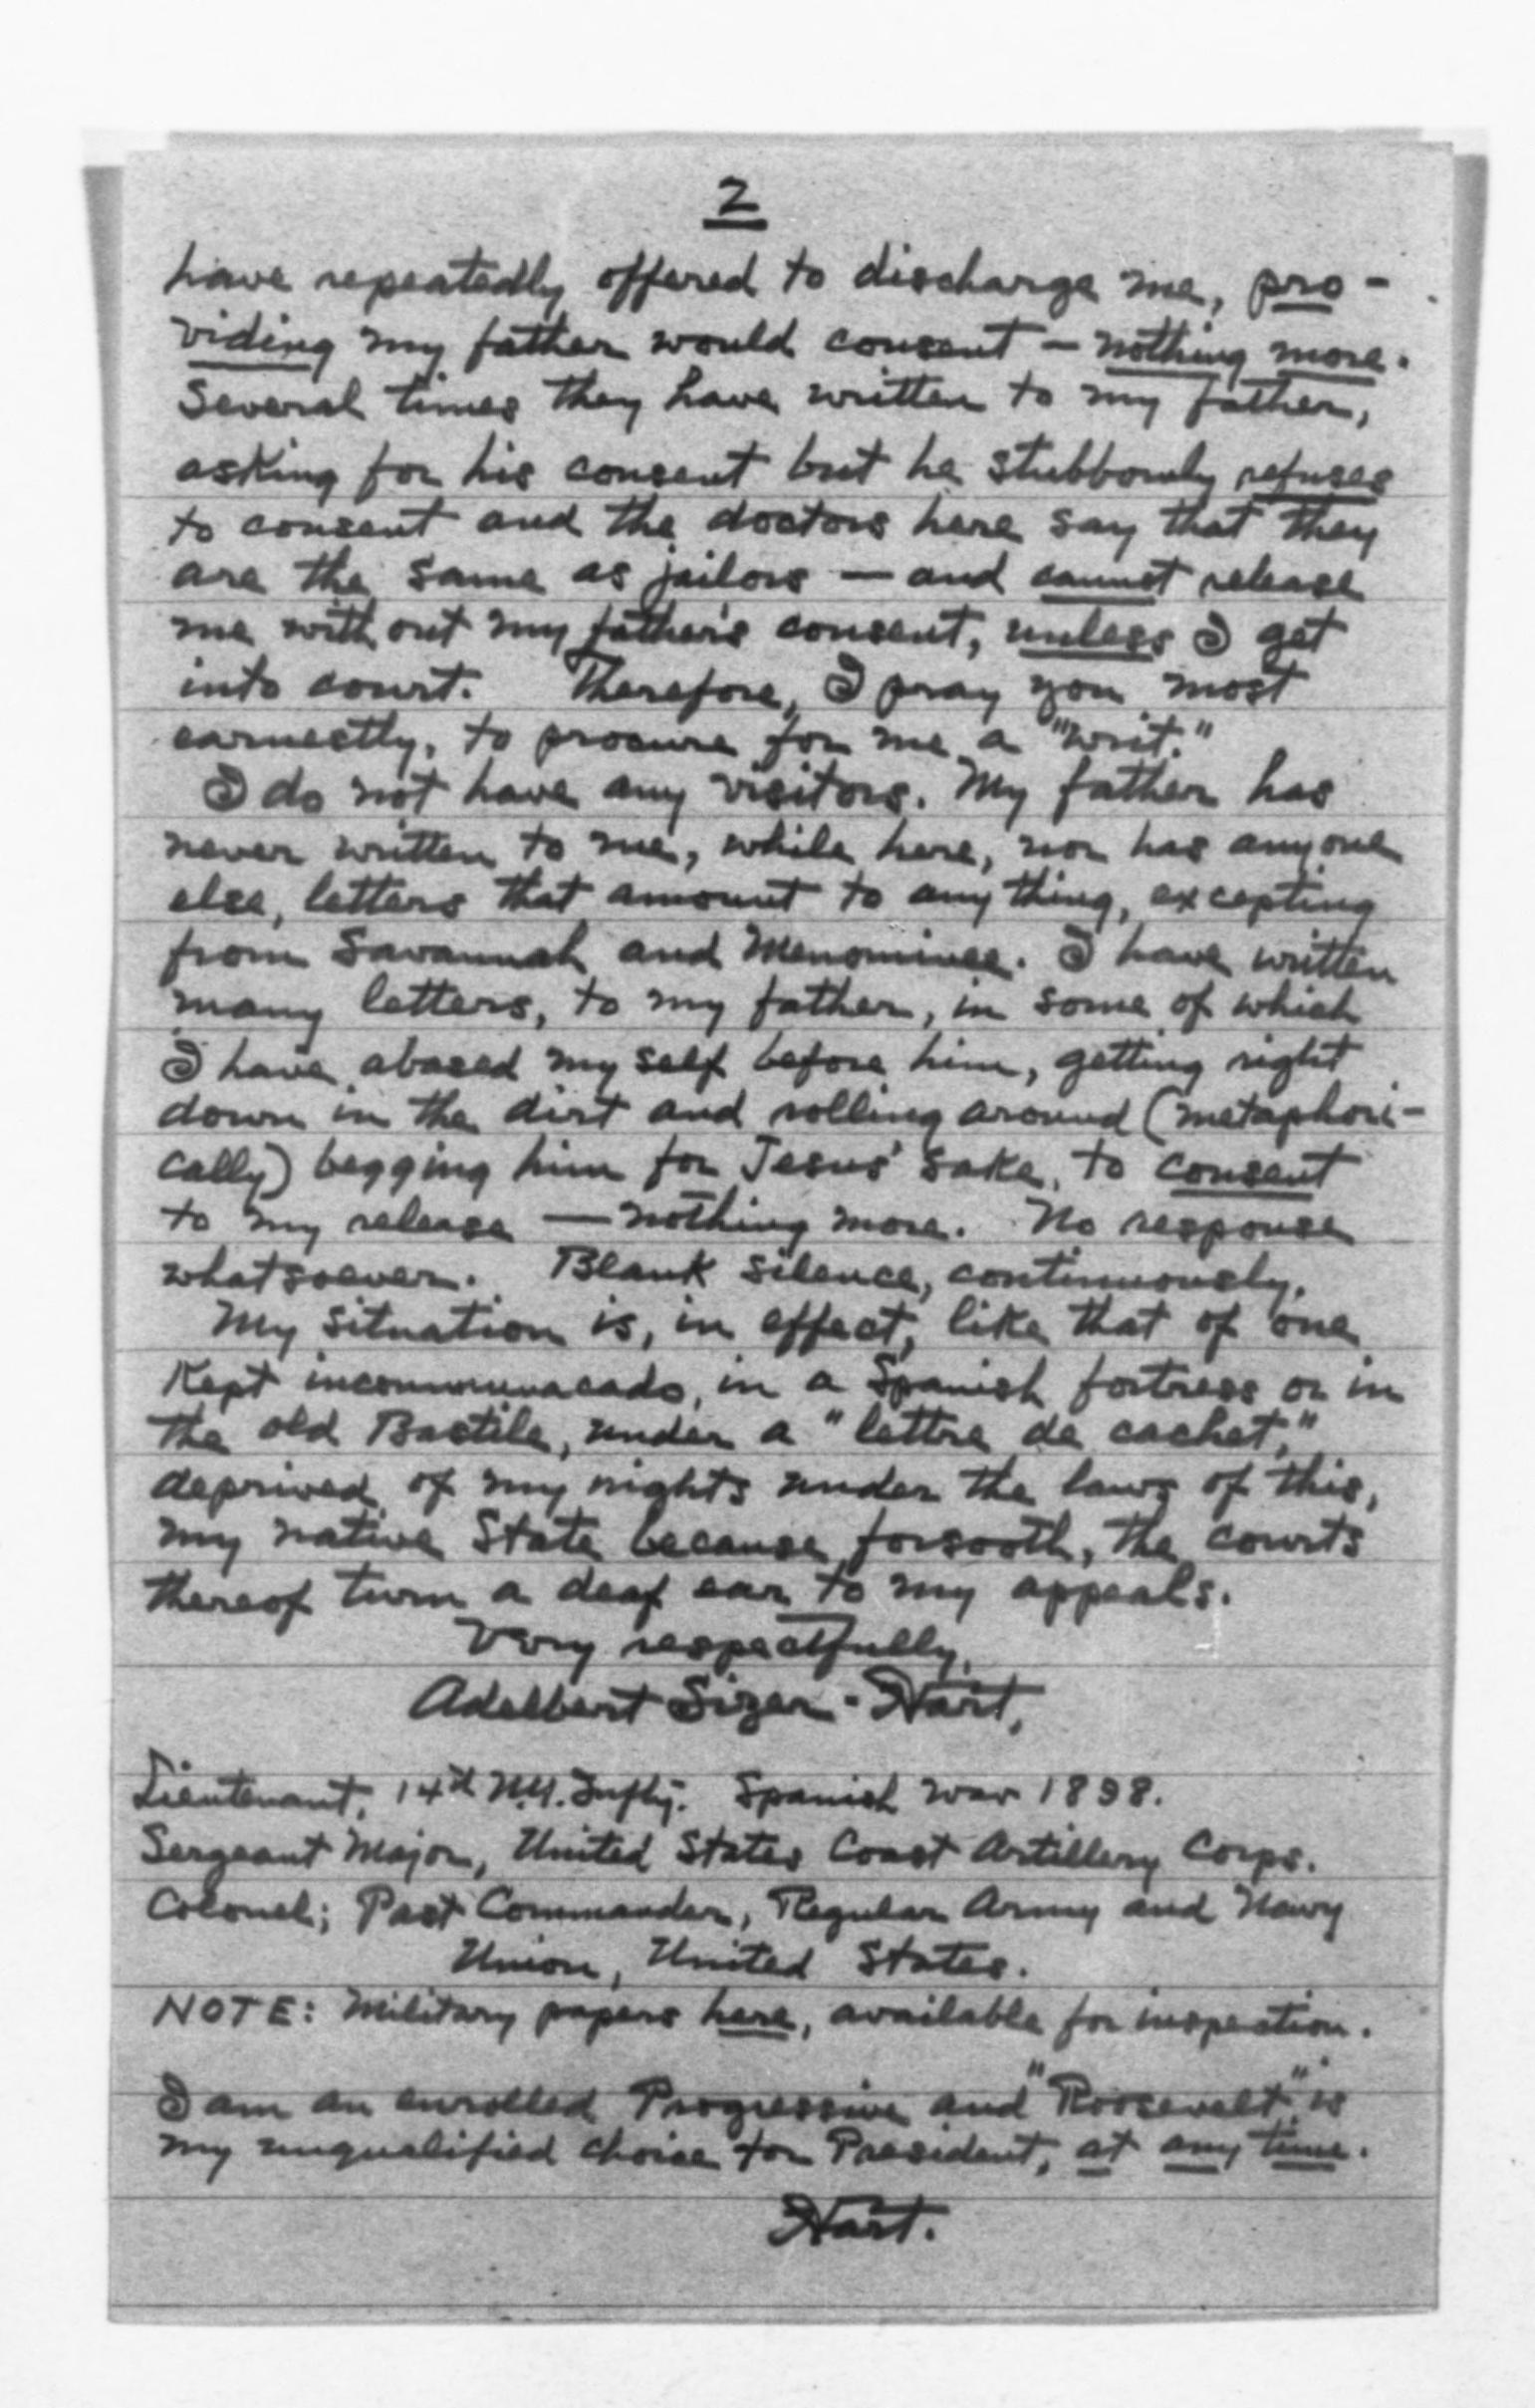 2
have repeatedly offered to discharge me, pro-
viding my father would consent — nothing more.
Several times they have written to my father,
asking for his consent but he stubbornly refuses
to consent and the doctors here say that they
are the same as jailors — and cannot release
me with out my father's consent, unless I get
into court. Therefore, I pray you most
earnestly, to procure for me a "writ."
I do not have any visitors. My father has
never written to me, while here, nor has anyone
else, letters that amount to any thing, excepting
from Savannah and Menominee. I have written
many letters, to my father, in some of which
I have abased my self before him, getting right
down in the dirt and rolling around (metaphori-
cally) begging him for Jesus' sake, to consent
to my release — nothing more. No response
whatsoever. Blank silence, continuously.
My situation is, in effect, like that of one
kept incommunacado, in a Spanish fortress or in
the old Bastile, under a "lettre de cachet,"
deprived of my rights under the laws of this,
my native State because, forsooth, the courts
thereof turn a deaf ear to my appeals.
Very respectfully,
Adelbert Sizer-Hart,
Lieutenant, 14th N.Y. Infty. Spanish war 1898.
Sergeant Major, United States Coast Artillery Corps.
Colonel; Past Commander, Regular Army and Navy
Union, United States.
NOTE: Military papers here, available for inspection.
I am an enrolled Progressive and "Roosevelt" is
my unqualified choice for President, at any time.
Hart.